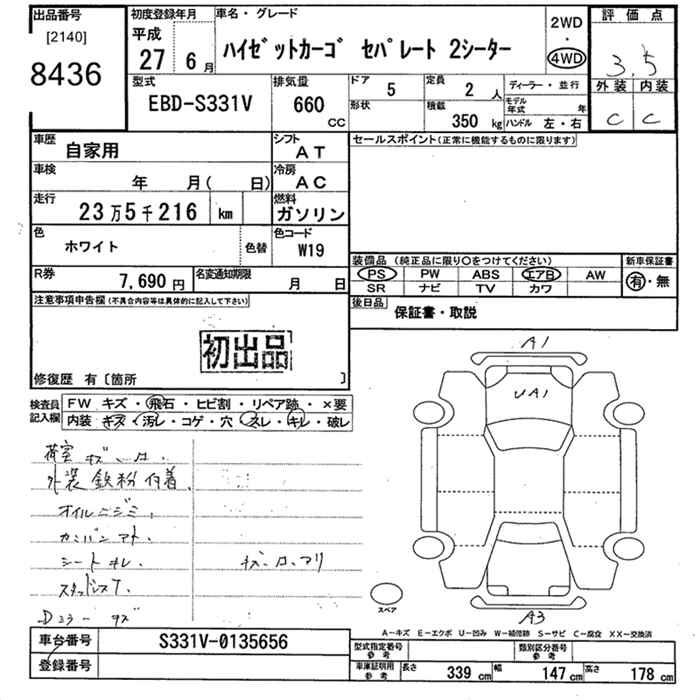 出品番号
[2140]
8436
初度登録年月
平成
27 6月
車名・グレード
ハイゼットカーゴ セパレート 2シーター
2WD
・
4WD
評価点
3.5
外装 内装
C C
型式
EBD-S331V
排気量
660
CC
ドア
5
定員
2 人
形状
積載
350 kg
ディーラー・並行
モデル年式 年
ハンドル 左・右
車歴
自家用
シフト
AT
車検
年 月( 日)
冷房
AC
走行
23万5千216 km
燃料
ガソリン
色
ホワイト
色替
色コード
W19
R券
7,690 円
名変通知期限
月 日
セールスポイント(正常に機能するものに限ります)
装備品 (純正品に限り〇をつけてください)
PS PW ABS エアB AW
SR ナビ TV カワ
新車保証書
有・無
後日品
保証書・取説
注意事項申告欄(不具合内容等は具体的に記入して下さい)
初出品
修復歴 有〔箇所 〕
検査員記入欄
FW キズ・飛石・ヒビ割・リペア跡・×要
内装・キズ・汚レ・コゲ・穴 スレ・キレ・破レ
荷室 キズ・凹.
外装 鉄粉付着.
オイルニジミ.
カンバンアト.
シートキレ.
キズ・凹アリ
スタッドレスT.
Dミラーキズ
A1
UA1
A3
スペア
A-キズ E-エクボ U-凹み W-補修跡 S-サビ C-腐食 XX-交換済
車台番号
S331V-0135656
登録番号
型式指定番号
参考
類別区分番号
参考
車庫証明用
参考
長さ 339 cm 幅 147 cm 高さ 178 cm